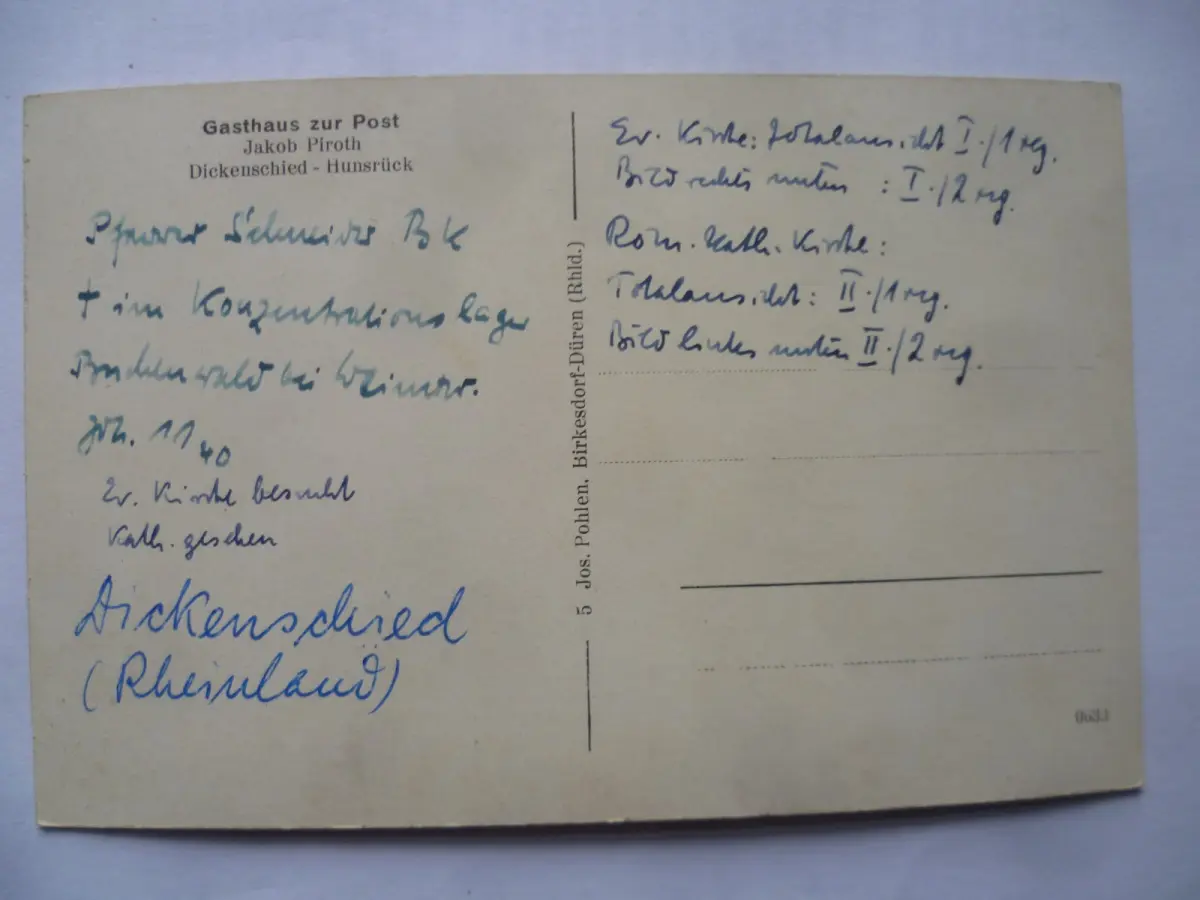 Gasthaus zur Post
Jakob Piroth
Dickenschied - Hunsrück
Pfarrer Schneider BK
† im Konzentrationslager
Buchenwald bei Weimar.
Joh. 11 40
Ev. Kirche besucht
Kath. gesehen
Dickenschied
(Rheinland)
5 Jos. Pohlen, Birkesdorf-Düren (Rhld.)
Ev. Kirche: Totalansicht I./1 reg.
Bild rechts unten : I./2 reg.
Röm. Kath. Kirche:
Totalansicht: II./1 reg.
Bild links unten II./2 reg.